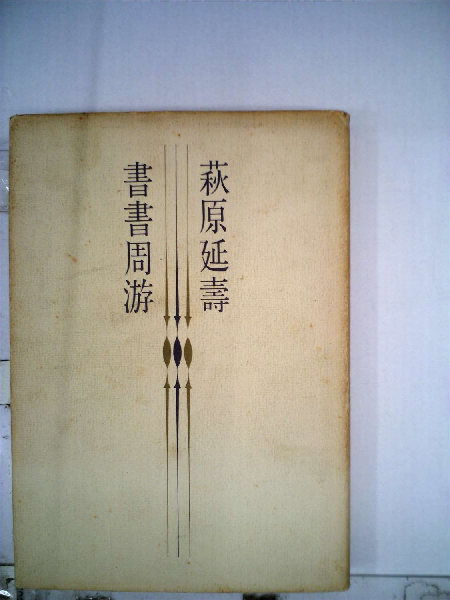 萩原延壽
書書周游